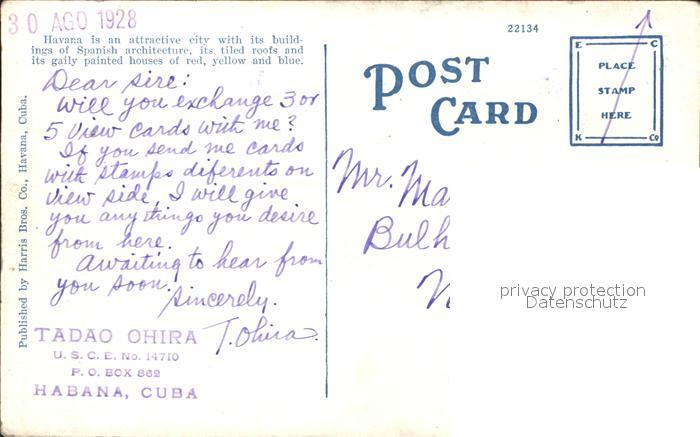 30 AGO 1928
Havana is an attractive city with its build-
ings of Spanish architecture, its tiled roofs and
its gaily painted houses of red, yellow and blue.
Dear sire:
Will you exchange 3 or
5 View cards with me?
If you send me cards
with stamps diferents on
View side, I will give
you any things you desire
from here.
Awaiting to hear from
you soon.
Sincerely.
T. Ohira.
TADAO OHIRA
U. S. C. E. No. 14710
P. O. BOX 862
HABANA, CUBA
Published by Harris Bros. Co., Havana, Cuba.
22134
POST
CARD
E C
PLACE
STAMP
HERE
K Co
Mr. Ma
Bulh
privacy protection
Datenschutz